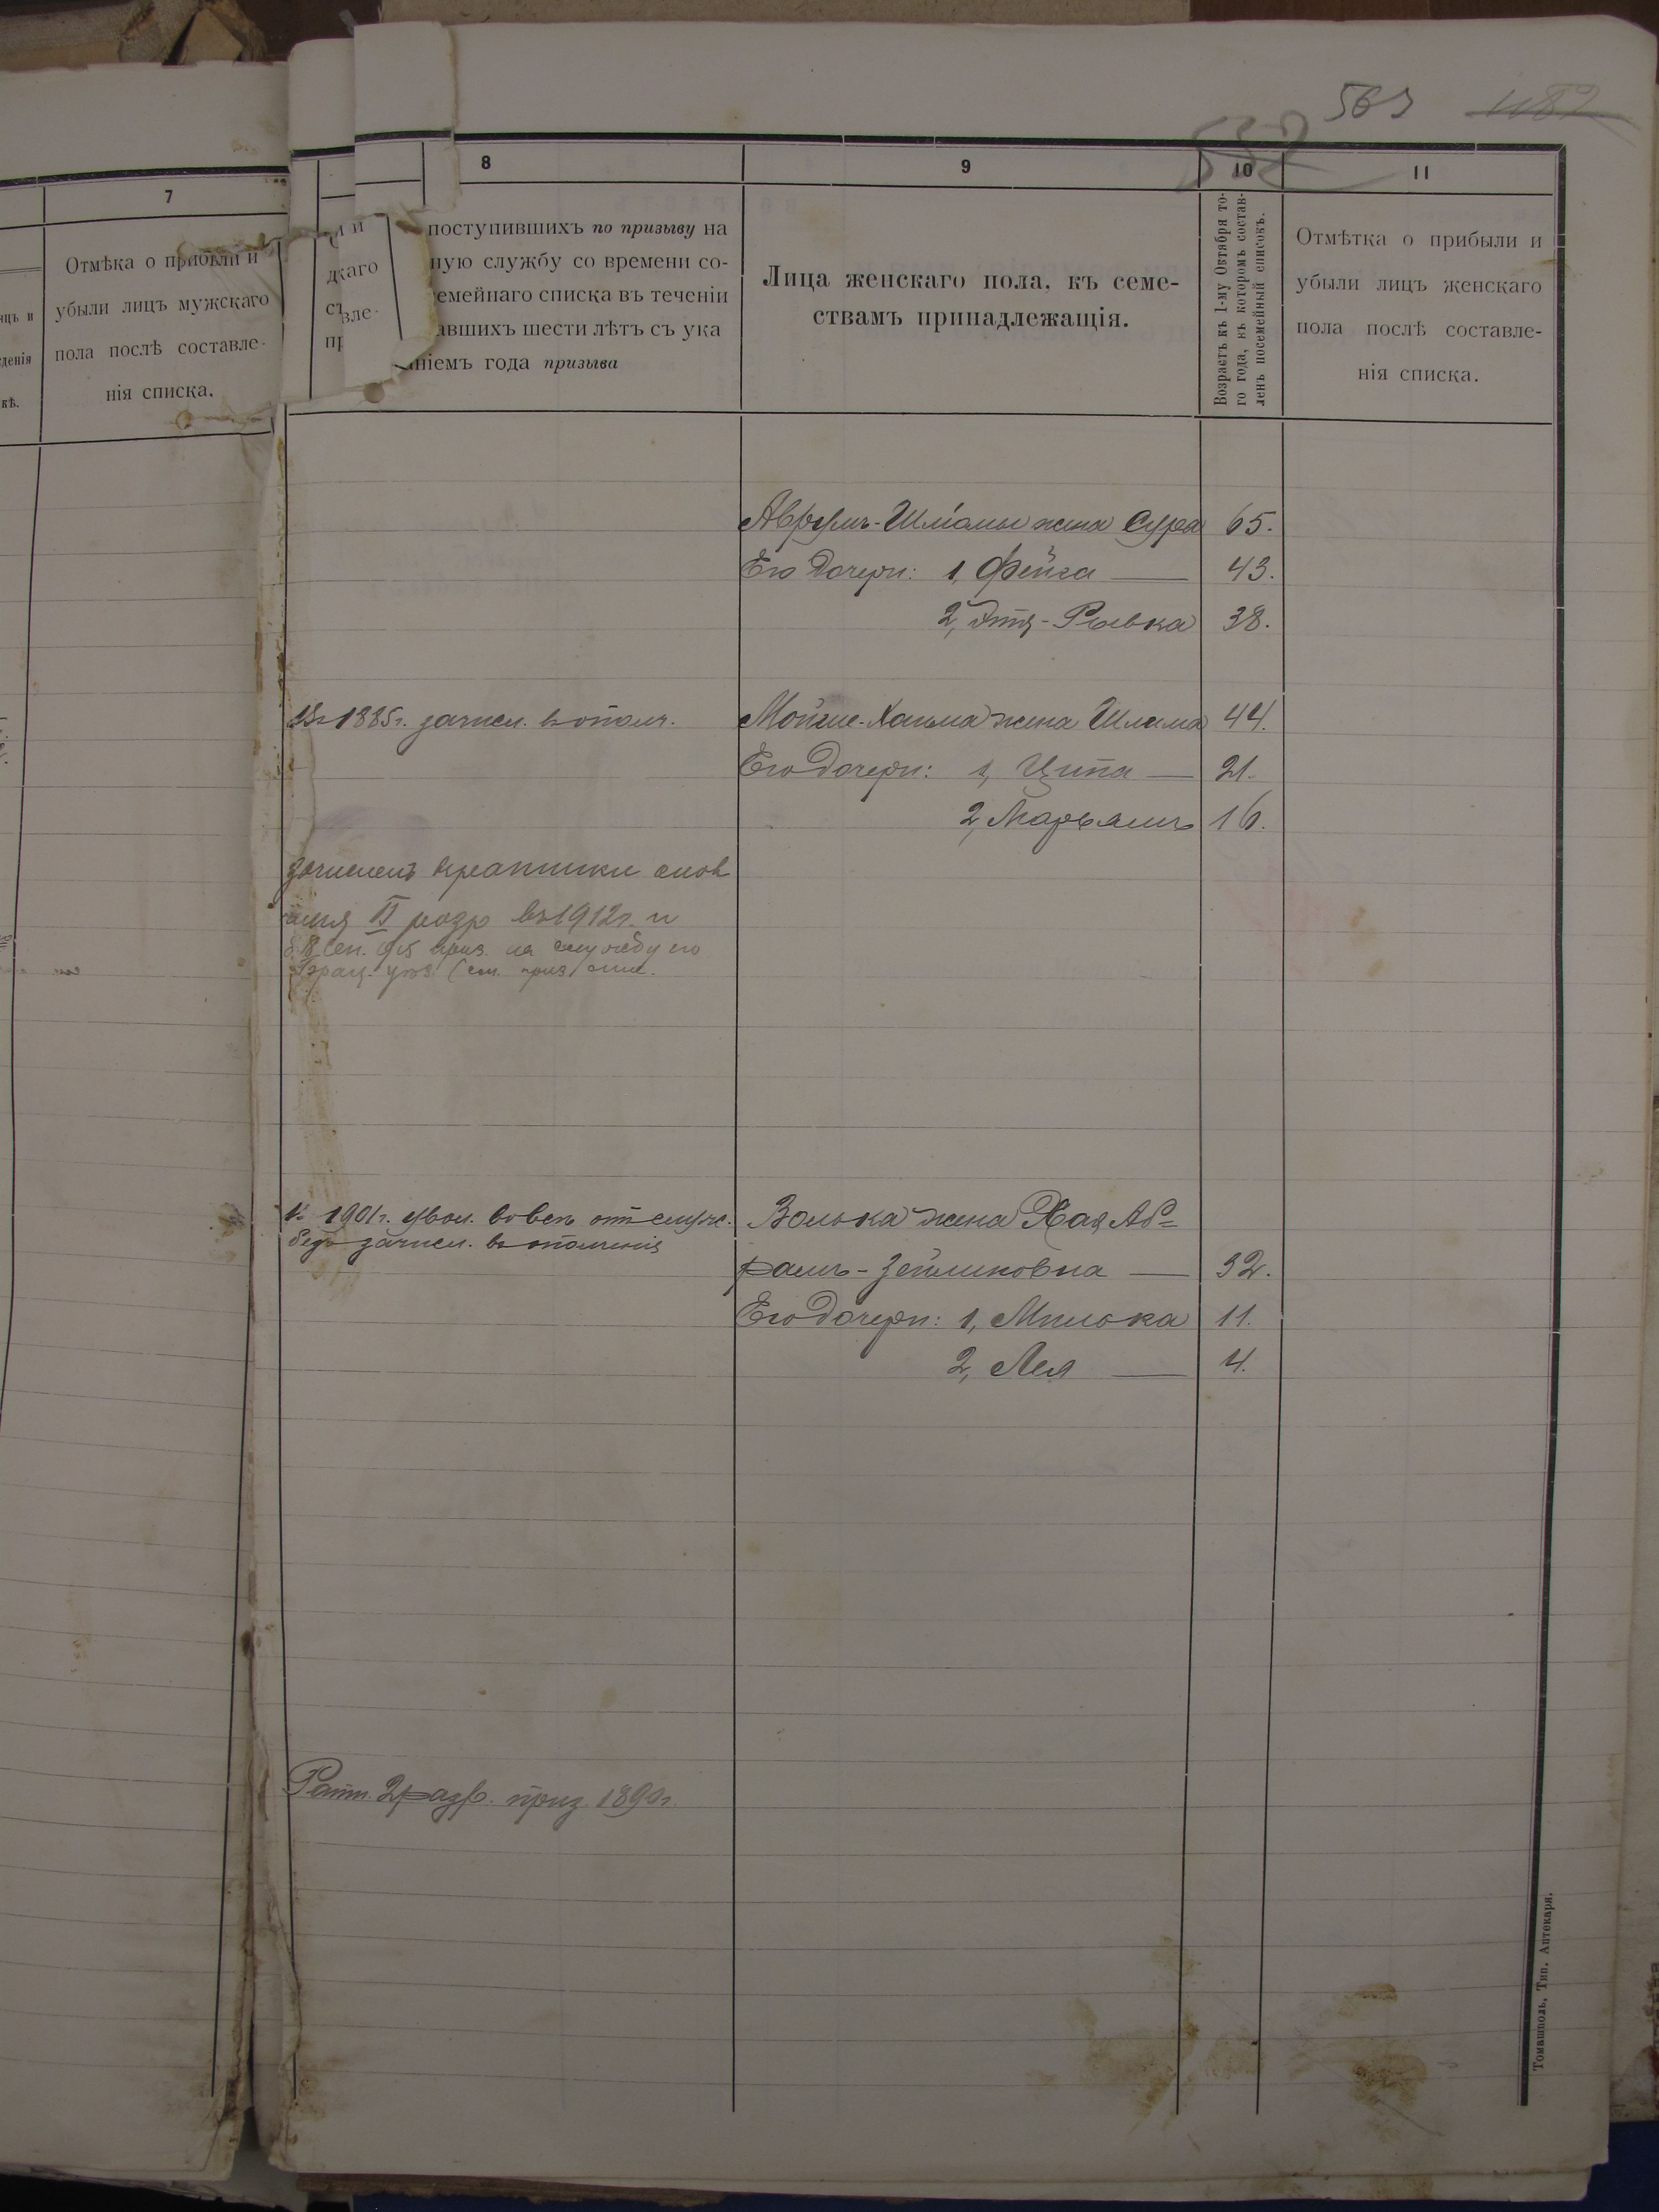 563 1182
532
7
Отмѣка о прибыли и
убыли лицъ мужскаго
пола послѣ составле-
нія списка.
8
поступившихъ по призыву на
ную службу со времени со-
емейнаго списка въ теченіи
авшихъ шести лѣтъ съ ука
ніемъ года призыва
9
Лица женскаго пола, къ семе-
ствамъ принадлежащія.
10
Возрастъ къ 1-му Октября то-
го года, къ которомъ состав-
ленъ посемейный списокъ.
11
Отмѣтка о прибыли и
убыли лицъ женскаго
пола послѣ составле-
нія списка.
Аврумъ-Шлiомы жена Сура 65.
Его дочери: 1, Фейга 43.
2, Этя-Рывка 38.
Въ 1885 г. зачисл. в ополч. Мойше-Хаима жена Шлима 44.
Его дочери: 1, Ципа 21.
2, Марьямъ 16.
зачисленъ
II разр въ 1912 г. и
на службу его
1901 г. увол. вовсе отъ служ. Волька жена Хая Аб=
безъ зачисл. в ополченiя
рамъ-Зейликовна 32.
Его дочери: 1, Милька 11.
2, Лея 4.
Ратн. 2 разр. приз. 1890 г.
Томашполь, Тип. Аптекаря.